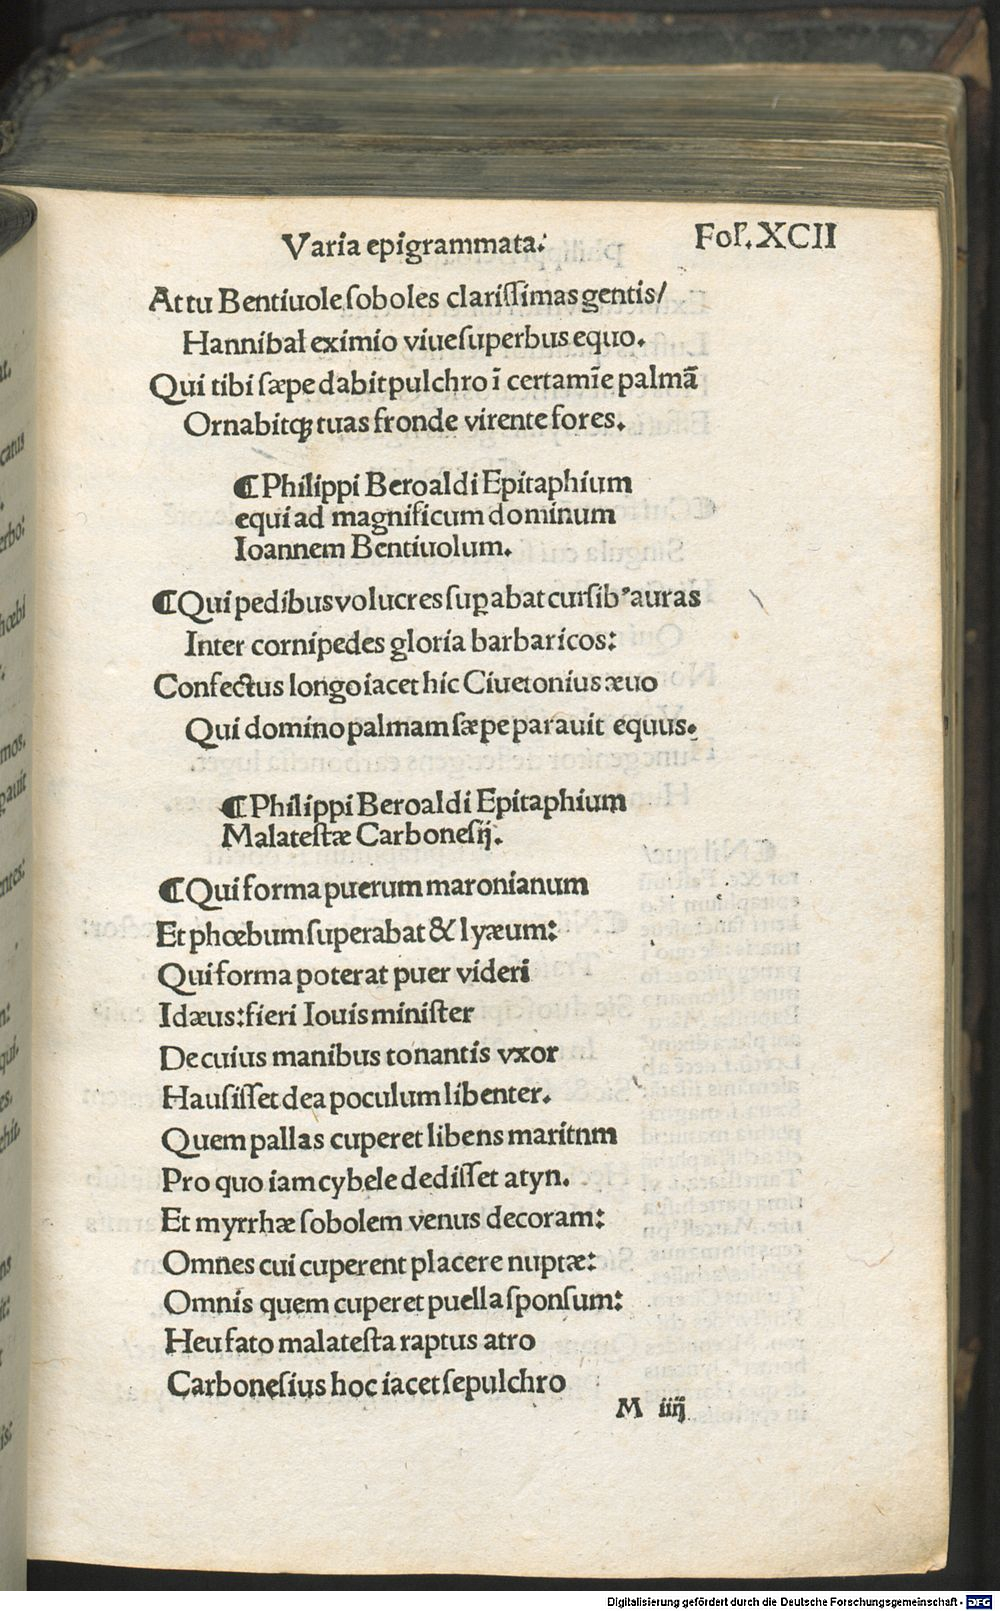 Varia epigrammata.
Fol. XCII
At tu Bentiuole soboles clarissimas gentis/
Hannibal eximio viue superbus equo.
Qui tibi sæpe dabit pulchro ī certamīe palmā
Ornabitqꝫ tuas fronde virente fores.
¶ Philippi Beroaldi Epitaphium
equi ad magnificum dominum
Ioannem Bentiuolum.
¶ Qui pedibus volucres suꝑabat cursibꝰ auras
Inter cornipedes gloria barbaricos:
Confectus longo iacet hic Ciuetonius æuo
Qui domino palmam sæpe parauit equus.
¶ Philippi Beroaldi Epitaphium
Malatestæ Carbonesij.
¶ Qui forma puerum maronianum
Et phœbum superabat & lyæum:
Qui forma poterat puer videri
Idæus: fieri Iouis minister
De cuius manibus tonantis vxor
Hausisset dea poculum libenter.
Quem pallas cuperet libens maritnm
Pro quo iam cybele dedisset atyn.
Et myrrhæ sobolem venus decoram:
Omnes cui cuperent placere nuptæ:
Omnis quem cuperet puella sponsum:
Heu fato malatesta raptus atro
Carbonesius hoc iacet sepulchro
M iiij
Digitalisierung gefördert durch die Deutsche Forschungsgemeinschaft - DFG